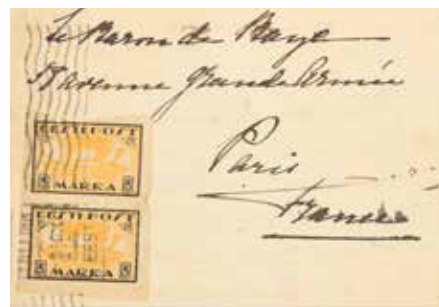 Le Baron de Baye
58 avenue Grande Armée
Paris
France
EESTI POST
5 MARKA 5
EESTI POST
5 MARKA 5